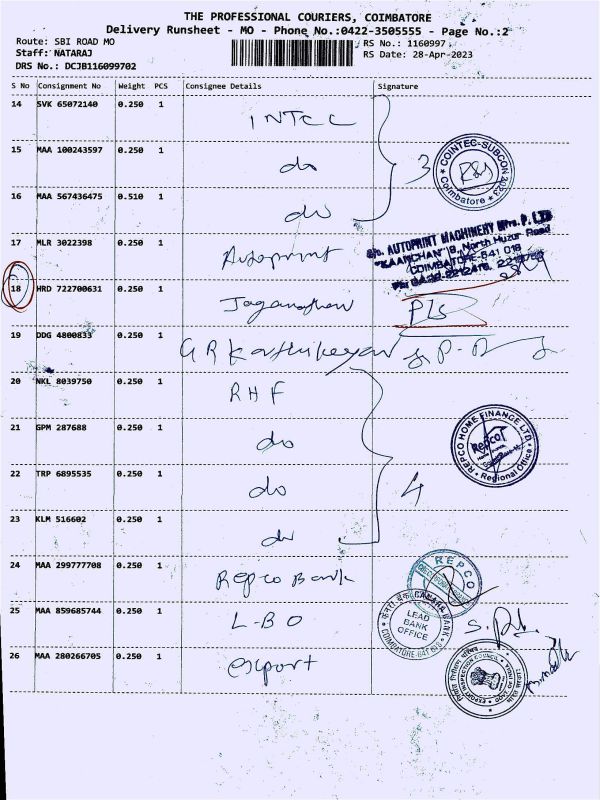 THE PROFESSIONAL COURIERS, COIMBATORE
Delivery Runsheet - MO - Phone No.:0422-3505555 - Page No.:2
Route: SBI ROAD MO
Staff: NATARAJ
DRS No.: DCJB116099702
RS No.: 1160997
RS Date: 28-Apr-2023
S No Consignment No Weight PCS Consignee Details Signature
14 SVK 65072140 0.250 1 INTCC
15 MAA 100243597 0.250 1 do 3
COINTEC-SUBCON 2023 Coimbatore
16 MAA 567436475 0.510 1 do
17 MLR 3022398 0.250 1 Autoprint
AUTOPRINT MACHINERY Mfrs. P. LTD
"KAANCHAN" North Huzur Road
COIMBATORE-641 018
18 HRD 722700631 0.250 1 Jaganathan PLS
19 DDG 4800833 0.250 1 GR Karthikeyan
20 NKL 8039750 0.250 1 RHF
21 GPM 287688 0.250 1 do
REPCO HOME FINANCE LTD Repco Regional Office
22 TRP 6895535 0.250 1 do 4
23 KLM 516602 0.250 1 do
24 MAA 299777708 0.250 1 Repco Bank
REPCO
25 MAA 859685744 0.250 1 L-BO
केनरा बैंक CANARA BANK
LEAD BANK OFFICE
COIMBATORE-641 018
26 MAA 280266705 0.250 1 export